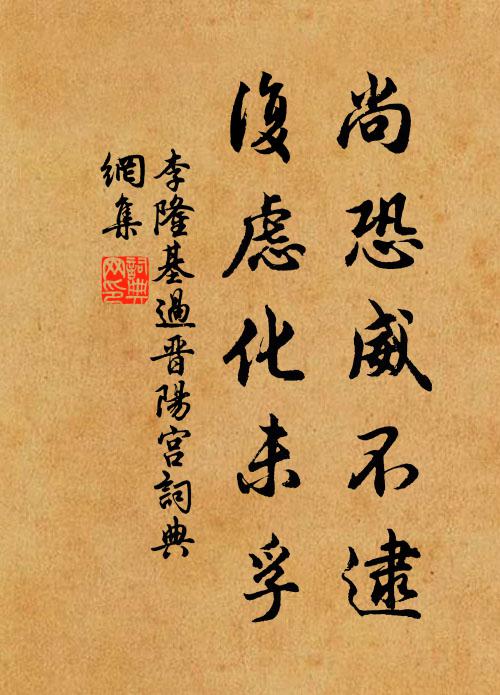 尚恐威不逮
復慮化未孚
李隆基過晋陽宮詞典
網集
詞典
网印